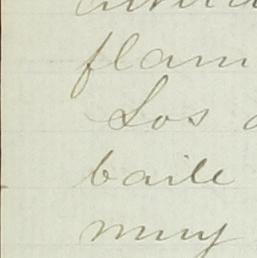 flam
Los
baile
muy